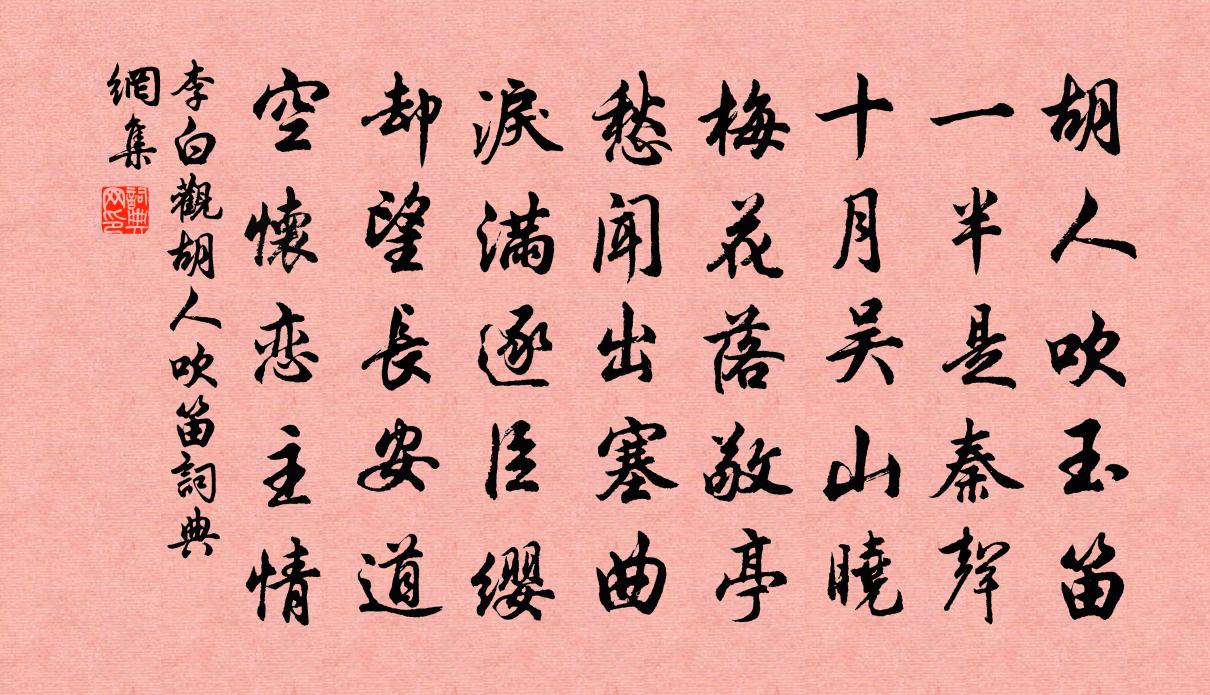 胡人吹玉笛
一半是秦聲
十月吴山曉
梅花落敬亭
愁聞出塞曲
淚滿逐臣缨
却望長安道
空懷恋主情
李白觀胡人吹笛詞典
網集
詞典
网印